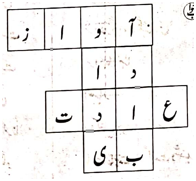 آ و ا ز
د ا
ع ا د ت
ب ی